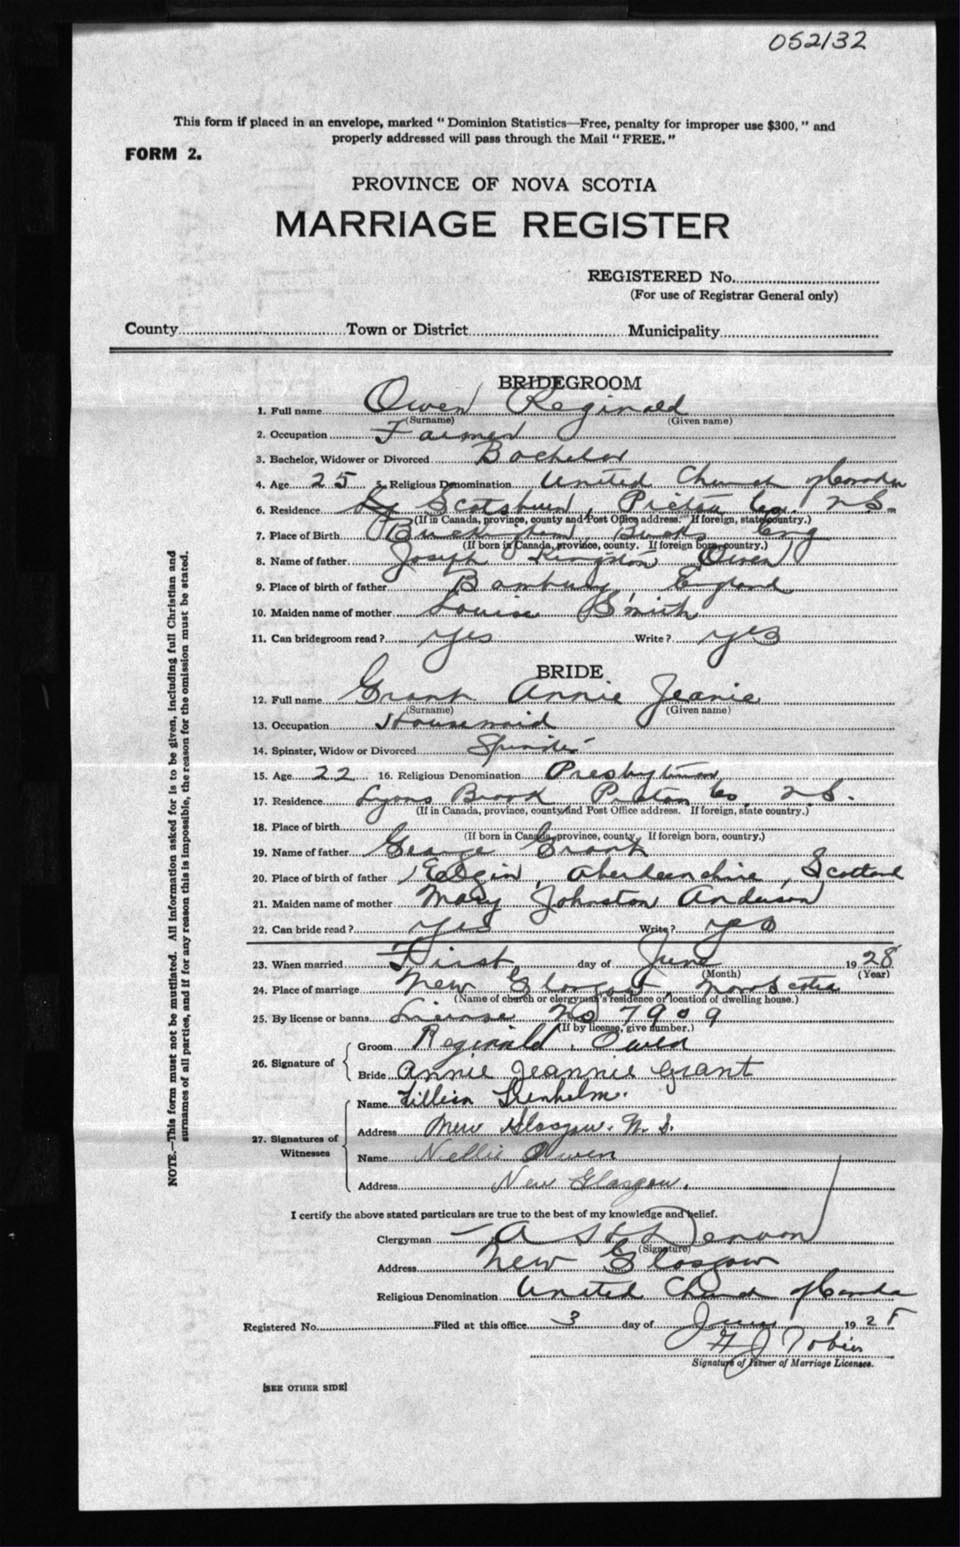 052132
This form if placed in an envelope, marked " Dominion Statistics—Free, penalty for improper use $300, " and
properly addressed will pass through the Mail " FREE. "
FORM 2.
PROVINCE OF NOVA SCOTIA
MARRIAGE REGISTER
REGISTERED No.
(For use of Registrar General only)
County Town or District Municipality
BRIDEGROOM
1. Full name Owen Reginald
(Surname) (Given name)
2. Occupation Farmer
3. Bachelor, Widower or Divorced Bachelor
4. Age 25 5. Religious Denomination United Church of Canada
6. Residence Scotsburn, Pictou Co. N.S.
(If in Canada, province, county and Post Office address. If foreign, state country.)
7. Place of Birth Buckingham Bucks Eng
(If born in Canada, province, county. If foreign born, country.)
8. Name of father Joseph Kingston Owen
9. Place of birth of father Banbury England
10. Maiden name of mother Louise Smith
11. Can bridegroom read? Yes Write? yes
BRIDE
12. Full name Grant Annie Jeanie
(Surname) (Given name)
13. Occupation Housemaid
14. Spinster, Widow or Divorced Spinster
15. Age 22 16. Religious Denomination Presbyterian
17. Residence Lyons Brook Pictou Co. N.S.
(If in Canada, province, county and Post Office address. If foreign, state country.)
18. Place of birth
(If born in Canada, province, county. If foreign born, country.)
19. Name of father George Grant
20. Place of birth of father Elgin, Aberdeenshire, Scotland
21. Maiden name of mother Mary Johnston Anderson
22. Can bride read? Yes Write? yes
23. When married First day of June 1928
(Month) (Year)
24. Place of marriage New Glasgow, Nova Scotia
(Name of church or clergyman's residence or location of dwelling house.)
25. By license or banns License No 7909
(If by license, give number.)
26. Signature of Groom Reginald. Owen
Bride Annie Jeannie Grant
27. Signatures of Witnesses
Name Lillian Trenholm.
Address New Glasgow. N.S.
Name Nellie Owen
Address New Glasgow.
I certify the above stated particulars are true to the best of my knowledge and belief.
Clergyman A
(Signature)
Address New Glasgow
Religious Denomination United Church of Canada
Registered No. Filed at this office 3 day of June 1928
Tobin
Signature of Issuer of Marriage Licenses.
[SEE OTHER SIDE]
NOTE.—This form must not be mutilated. All information asked for is to be given, including full Christian and
surnames of all parties, and if for any reason this is impossible, the reason for the omission must be stated.